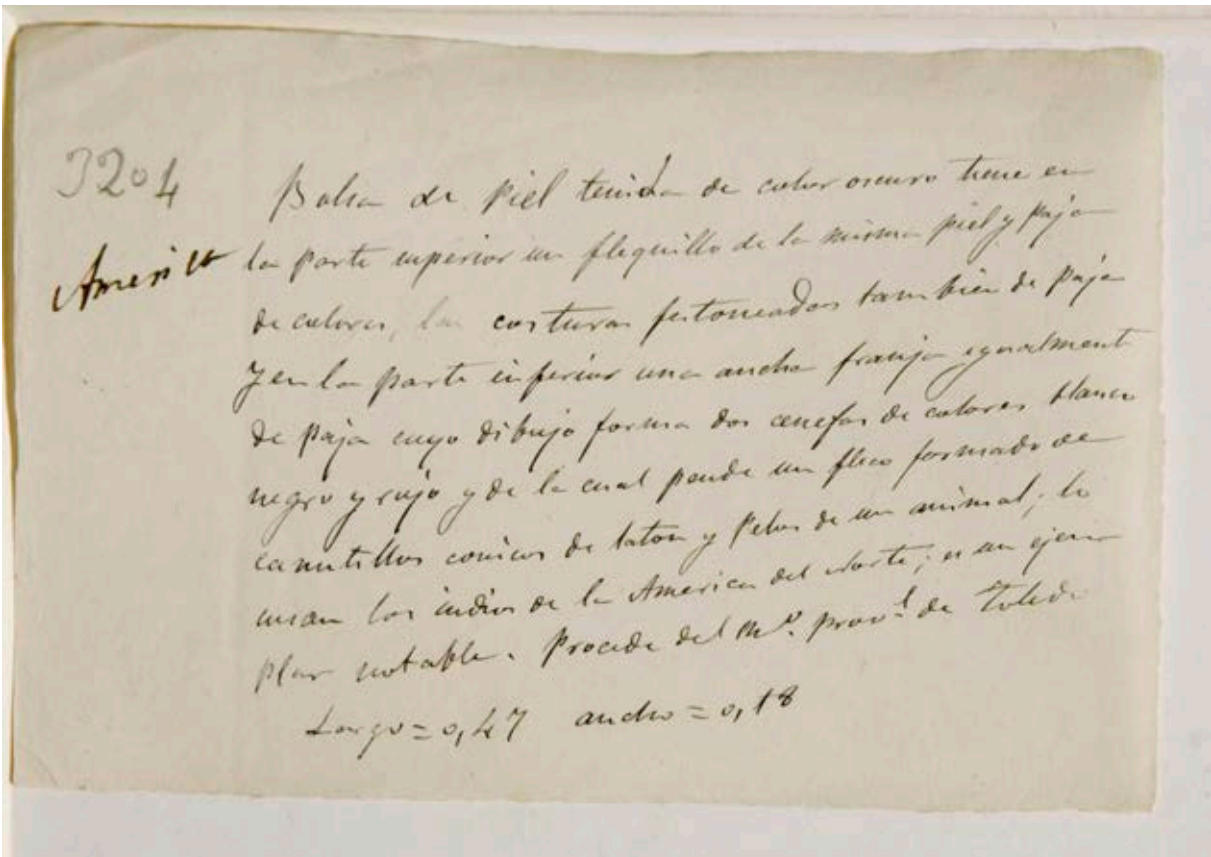 3204
America
Bolsa de piel teñida de color oscuro tiene en
la parte superior un flequillo de la misma piel y paja
de colores, las costuras festoneadas tambien de paja
y en la parte inferior una ancha franja igualmente
de paja cuyo dibujo forma dos cenefas de colores blanco
negro y rojo y de la cual pende un fleco formado de
canutillos conicos de laton y pelos de un animal; lo
usan los indios de la America del Norte; es un ejem-
plar notable. Procede del M.º prov.l de Toledo
Largo = 0,47 ancho = 0,18